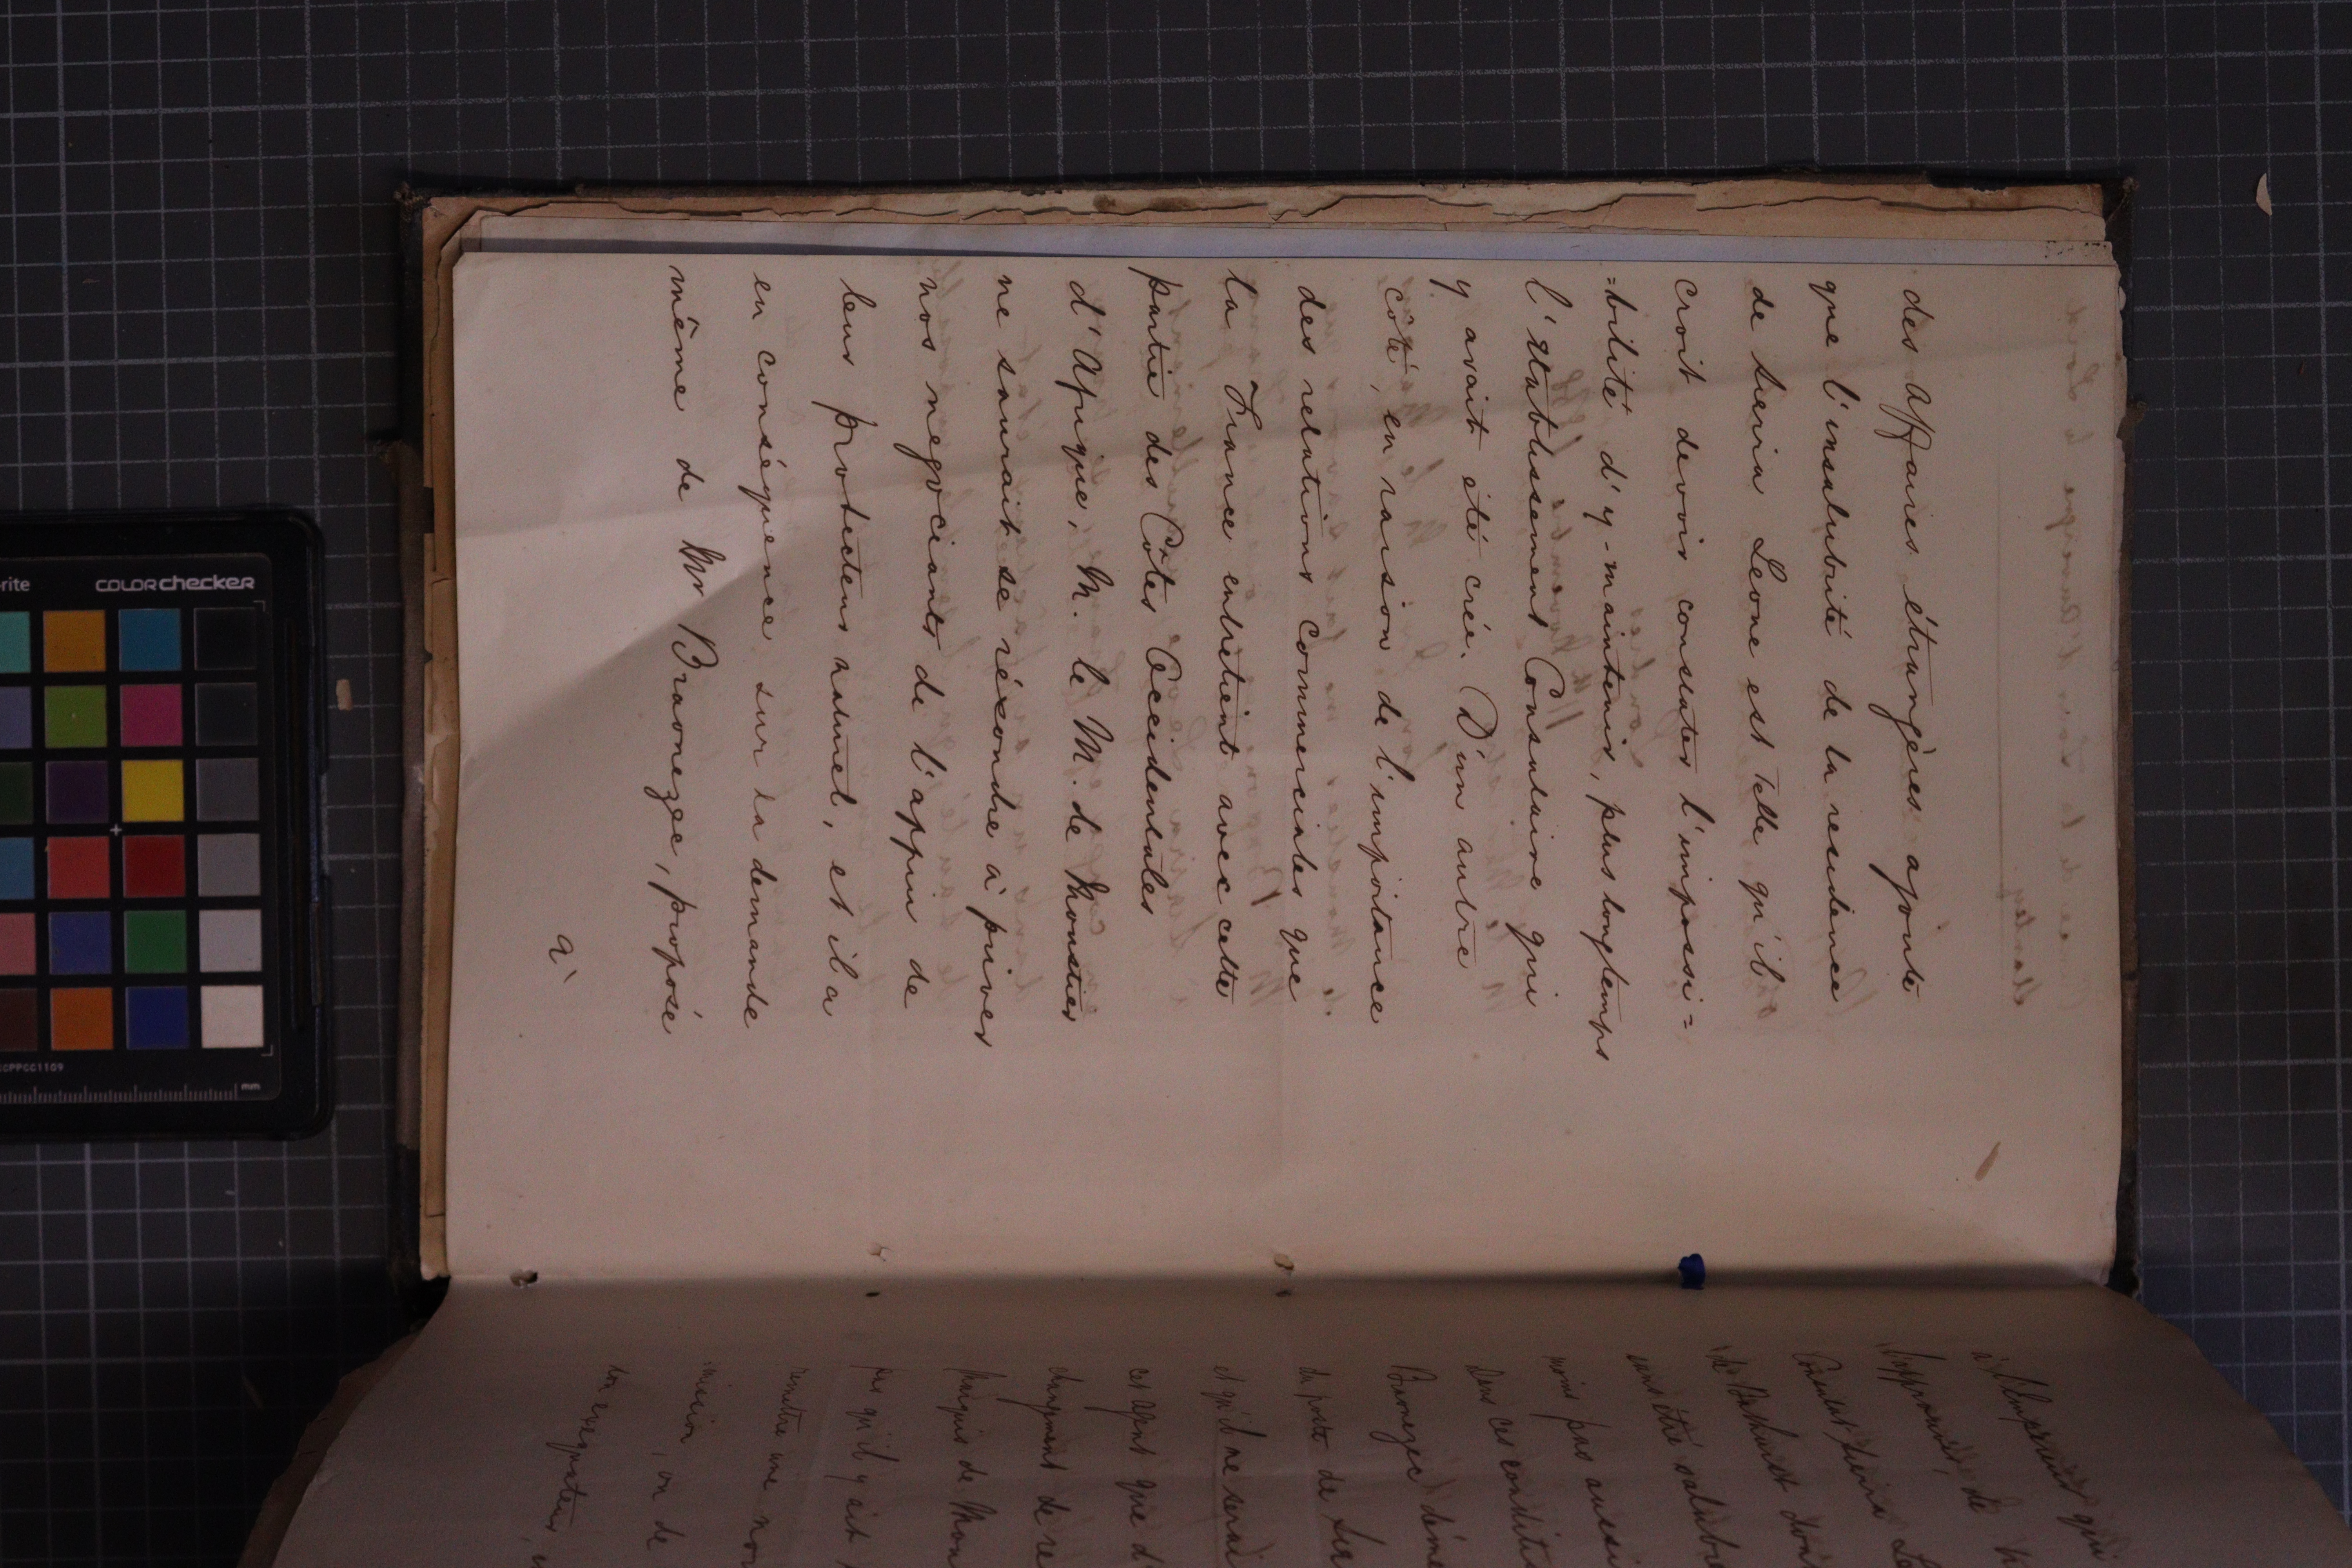 des affaires étrangères ajoute
que l'insalubrité de la residence
de Sierra Leone est telle qu'il
croit devoir constater l'impossi=
=bilité d'y-maintenir, plus longtemps
l'établissement Consulaire qui
y avait été créé. D'un autre
côté, en raison de l'importance
des relations commerciales que
la France entretient avec cette
partie des Côtes Occidentales
d'Afrique, M. le M. de Moustier
ne saurait se résoudre à priver
nos negociants de l'appui de
leur protecteur naturel, et il a
en conséquence sur la demande
même de Mr Braonezec, proposé
à
à l'Empereur qui
approuvé, de
Consulat Sierra Le
de Bathurst dont
sans être salubre
moins pas aussi
Dans ces conditi
Braonezec déme
du poste de Sier
et qu'il ne serai
cet agent que d
changement de re
Marquis de Mou
pas qu'il y ait
remettre une nou
mission, ou de
son exequatur,
colorchecker
mm